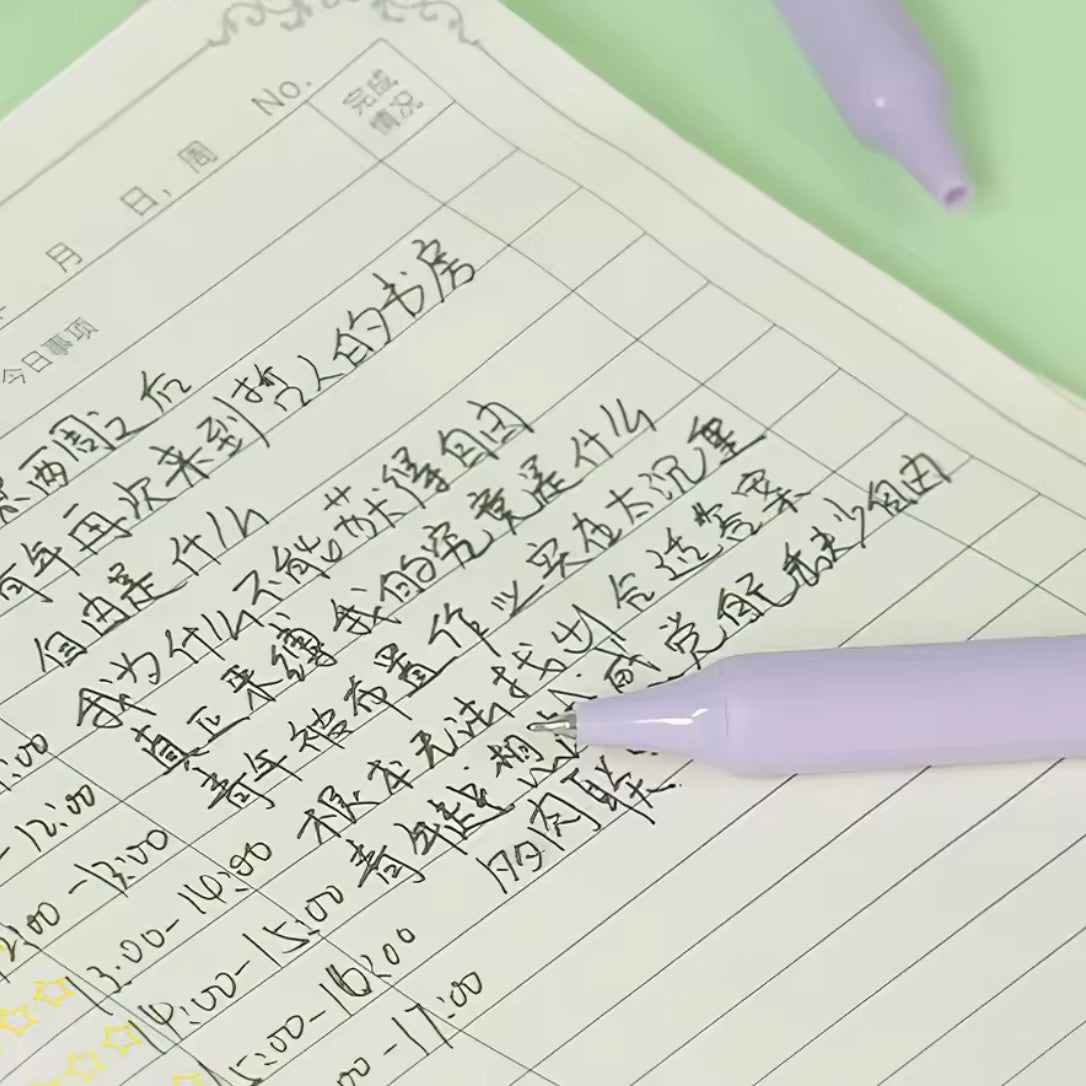 No.
完成
情况
月 日，周
今日事项
两周之后
青年再次来到哲人的书房
自由是什么
我为什么不能获得自由
真正束缚我的究竟是什么
青年被布置作业实在太沉重
根本无法找出合适答案
青年越想 感觉自己缺少自由
:00
- 12:00
12:00 - 13:00
13:00 - 14:00
14:00 - 15:00
15:00 - 16:00
:00 - 17:00